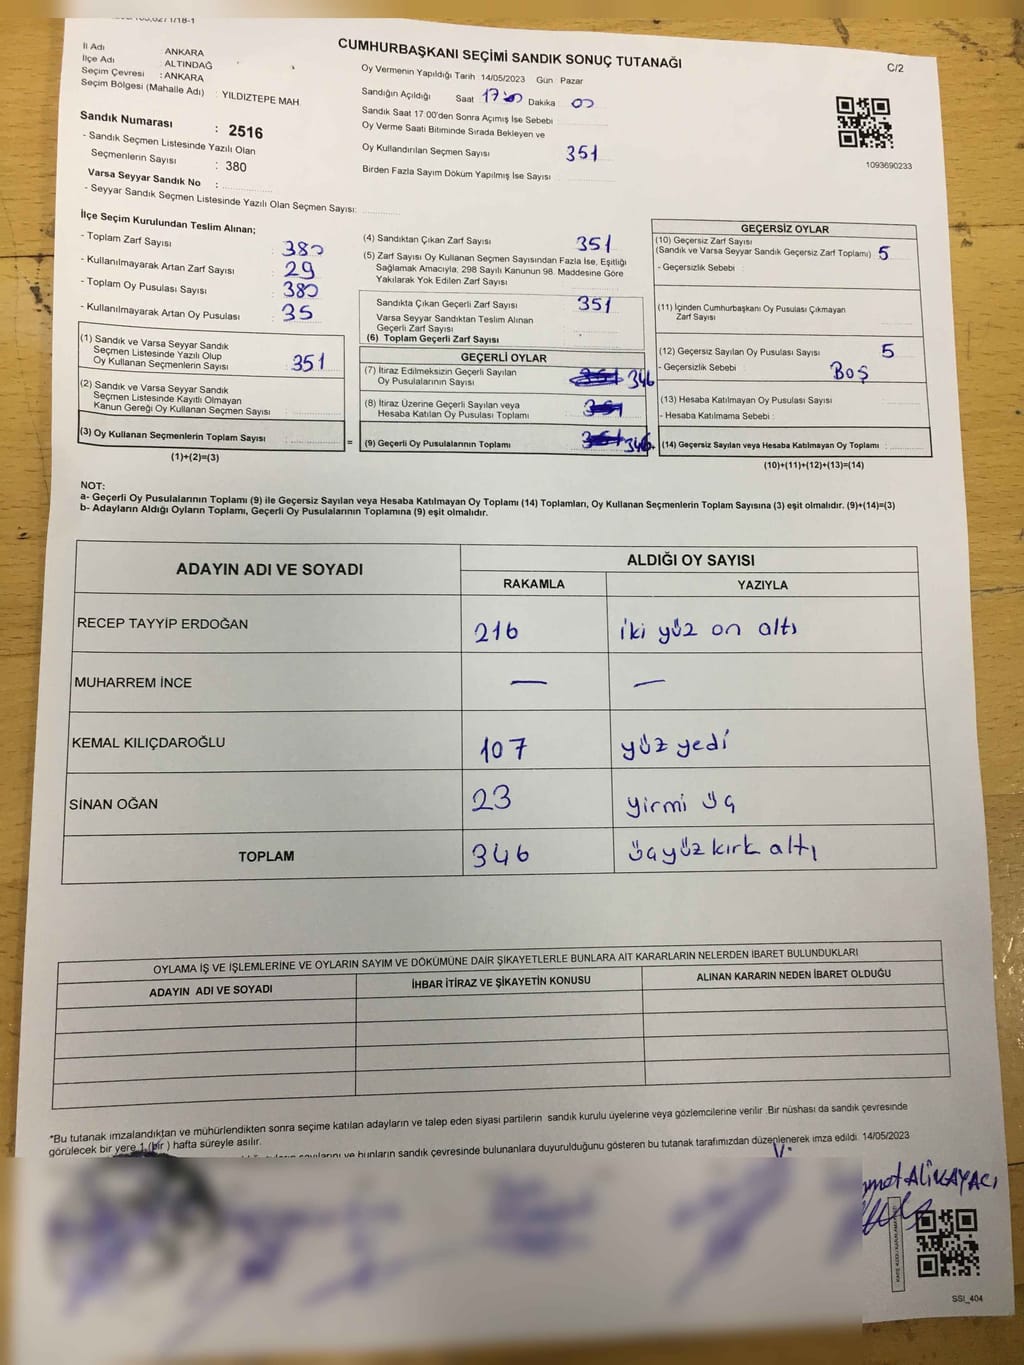 CUMHURBAŞKANI SEÇİMİ SANDIK SONUÇ TUTANAĞI
C/2
İl Adı : ANKARA
İlçe Adı : ALTINDAĞ
Seçim Çevresi : ANKARA
Seçim Bölgesi (Mahalle Adı) : YILDIZTEPE MAH.
Sandık Numarası : 2516
- Sandık Seçmen Listesinde Yazılı Olan
Seçmenlerin Sayısı : 380
Varsa Seyyar Sandık No :
- Seyyar Sandık Seçmen Listesinde Yazılı Olan Seçmen Sayısı:
Oy Vermenin Yapıldığı Tarih 14/05/2023 Gün Pazar
Sandığın Açıldığı Saat 17:00 Dakika 00
Sandık Saat 17:00'den Sonra Açımış İse Sebebi
Oy Verme Saati Bitiminde Sırada Bekleyen ve
Oy Kullandırılan Seçmen Sayısı 351
Birden Fazla Sayım Döküm Yapılmış İse Sayısı
1093690233
İlçe Seçim Kurulundan Teslim Alınan;
- Toplam Zarf Sayısı : 380
- Kullanılmayarak Artan Zarf Sayısı : 29
- Toplam Oy Pusulası Sayısı : 380
- Kullanılmayarak Artan Oy Pusulası : 35
(1) Sandık ve Varsa Seyyar Sandık
Seçmen Listesinde Yazılı Olup
Oy Kullanan Seçmenlerin Sayısı : 351
(2) Sandık ve Varsa Seyyar Sandık
Seçmen Listesinde Kayıtlı Olmayan
Kanun Gereği Oy Kullanan Seçmen Sayısı
(3) Oy Kullanan Seçmenlerin Toplam Sayısı :
=
(1)+(2)=(3)
(4) Sandıktan Çıkan Zarf Sayısı 351
(5) Zarf Sayısı Oy Kullanan Seçmen Sayısından Fazla İse, Eşitliği
Sağlamak Amacıyla, 298 Sayılı Kanunun 98. Maddesine Göre
Yakılarak Yok Edilen Zarf Sayısı
Sandıkta Çıkan Geçerli Zarf Sayısı 351
Varsa Seyyar Sandıktan Teslim Alınan
Geçerli Zarf Sayısı
(6) Toplam Geçerli Zarf Sayısı
GEÇERLİ OYLAR
(7) İtiraz Edilmeksizin Geçerli Sayılan
Oy Pusulalarının Sayısı 346
(8) İtiraz Üzerine Geçerli Sayılan veya
Hesaba Katılan Oy Pusulası Toplamı
(9) Geçerli Oy Pusulalarının Toplamı 346
GEÇERSİZ OYLAR
(10) Geçersiz Zarf Sayısı
(Sandık ve Varsa Seyyar Sandık Geçersiz Zarf Toplamı) 5
- Geçersizlik Sebebi :
(11) İçinden Cumhurbaşkanı Oy Pusulası Çıkmayan
Zarf Sayısı
(12) Geçersiz Sayılan Oy Pusulası Sayısı 5
- Geçersizlik Sebebi : BOŞ
(13) Hesaba Katılmayan Oy Pusulası Sayısı
- Hesaba Katılmama Sebebi :
(14) Geçersiz Sayılan veya Hesaba Katılmayan Oy Toplamı :
(10)+(11)+(12)+(13)=(14)
NOT:
a- Geçerli Oy Pusulalarının Toplamı (9) ile Geçersiz Sayılan veya Hesaba Katılmayan Oy Toplamı (14) Toplamları, Oy Kullanan Seçmenlerin Toplam Sayısına (3) eşit olmalıdır. (9)+(14)=(3)
b- Adayların Aldığı Oyların Toplamı, Geçerli Oy Pusulalarının Toplamına (9) eşit olmalıdır.
ADAYIN ADI VE SOYADI
ALDIĞI OY SAYISI
RAKAMLA YAZIYLA
RECEP TAYYİP ERDOĞAN 216 iki yüz on altı
MUHARREM İNCE — —
KEMAL KILIÇDAROĞLU 107 yüz yedi
SİNAN OĞAN 23 yirmi üç
TOPLAM 346 üçyüz kırk altı
OYLAMA İŞ VE İŞLEMLERİNE VE OYLARIN SAYIM VE DÖKÜMÜNE DAİR ŞİKAYETLERLE BUNLARA AİT KARARLARIN NELERDEN İBARET BULUNDUKLARI
ADAYIN ADI VE SOYADI İHBAR İTİRAZ VE ŞİKAYETİN KONUSU ALINAN KARARIN NEDEN İBARET OLDUĞU
*Bu tutanak imzalandıktan ve mühürlendikten sonra seçime katılan adayların ve talep eden siyasi partilerin sandık kurulu üyelerine veya gözlemcilerine verilir. Bir nüshası da sandık çevresinde
görülecek bir yere 1 (bir) hafta süreyle asılır.
bunların sandık çevresinde bulunanlara duyurulduğunu gösteren bu tutanak tarafımızdan düzenlenerek imza edildi. 14/05/2023
ALİKAYACI
SSI_404